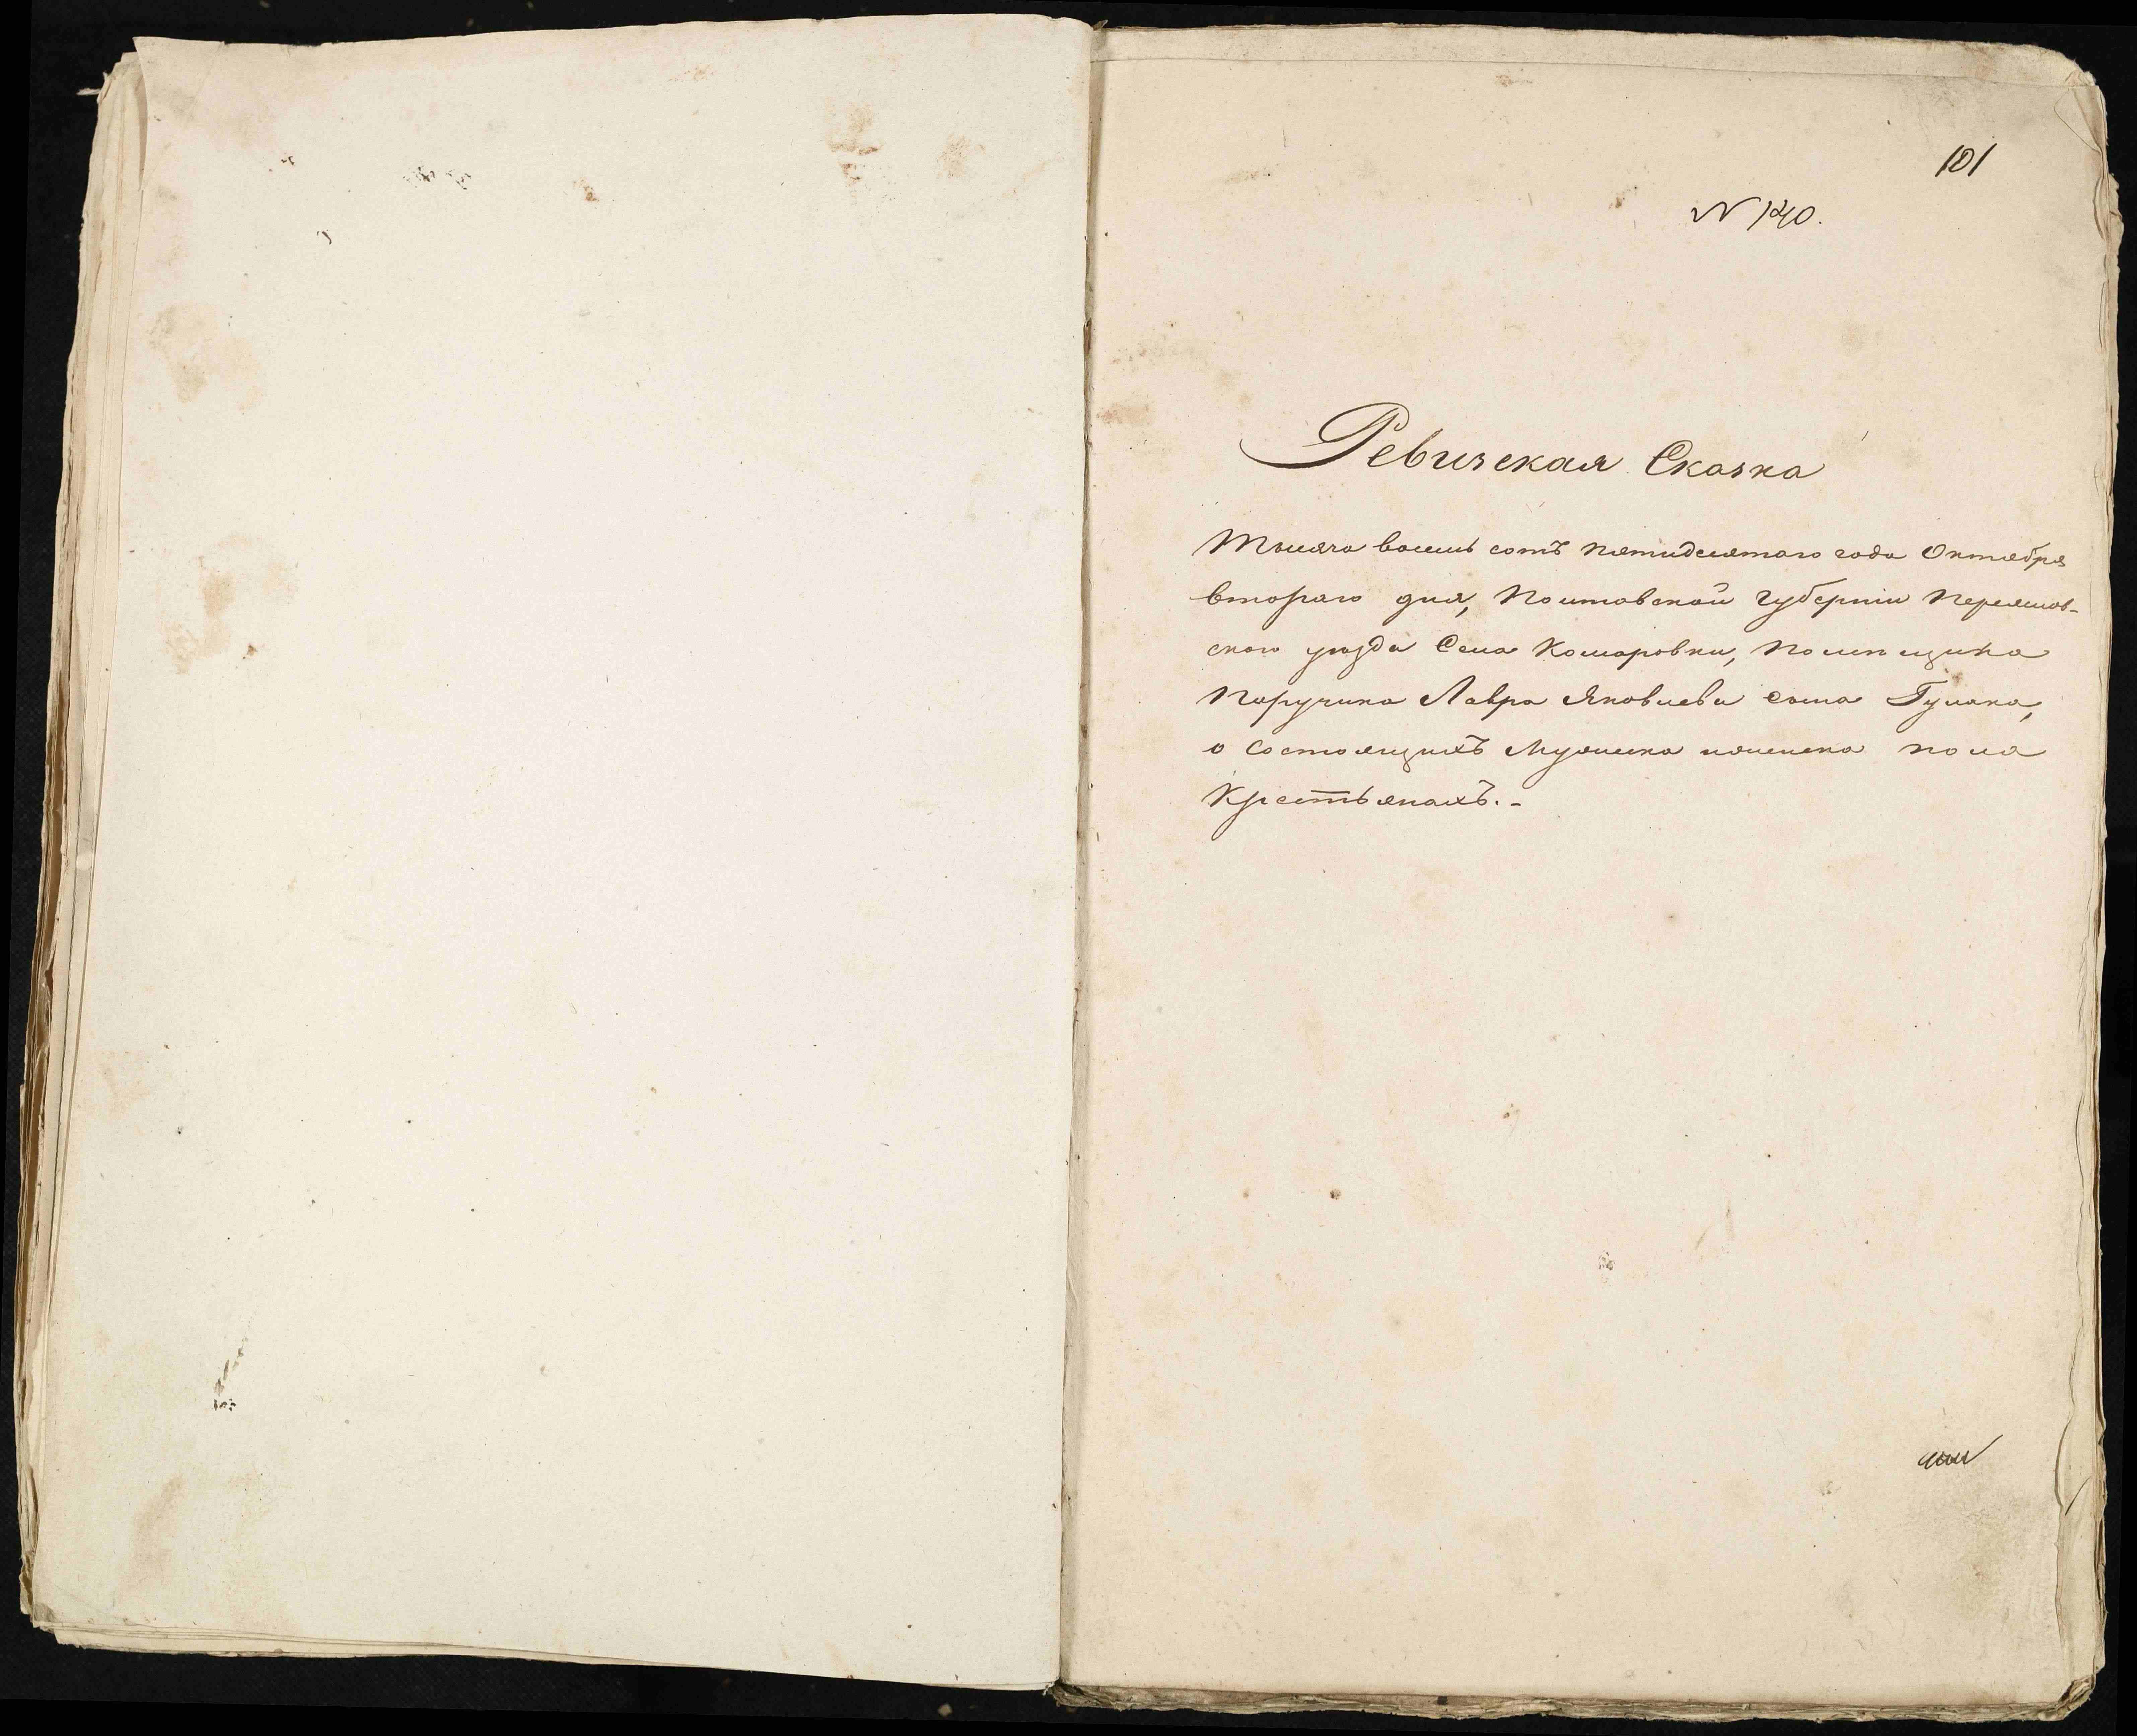 101
N 140.
Ревизская Сказка
Тысяча восемь сотъ пятидесятого года Октября
втораго дня, Полтавской губерніи Переяслов-
скаго уѣзда Села Комаровки, Помѣщика
Поручика Лавра Яковлева сына Гулака,
о состоящихъ Мужеска иженска пола
Крестьянахъ.-